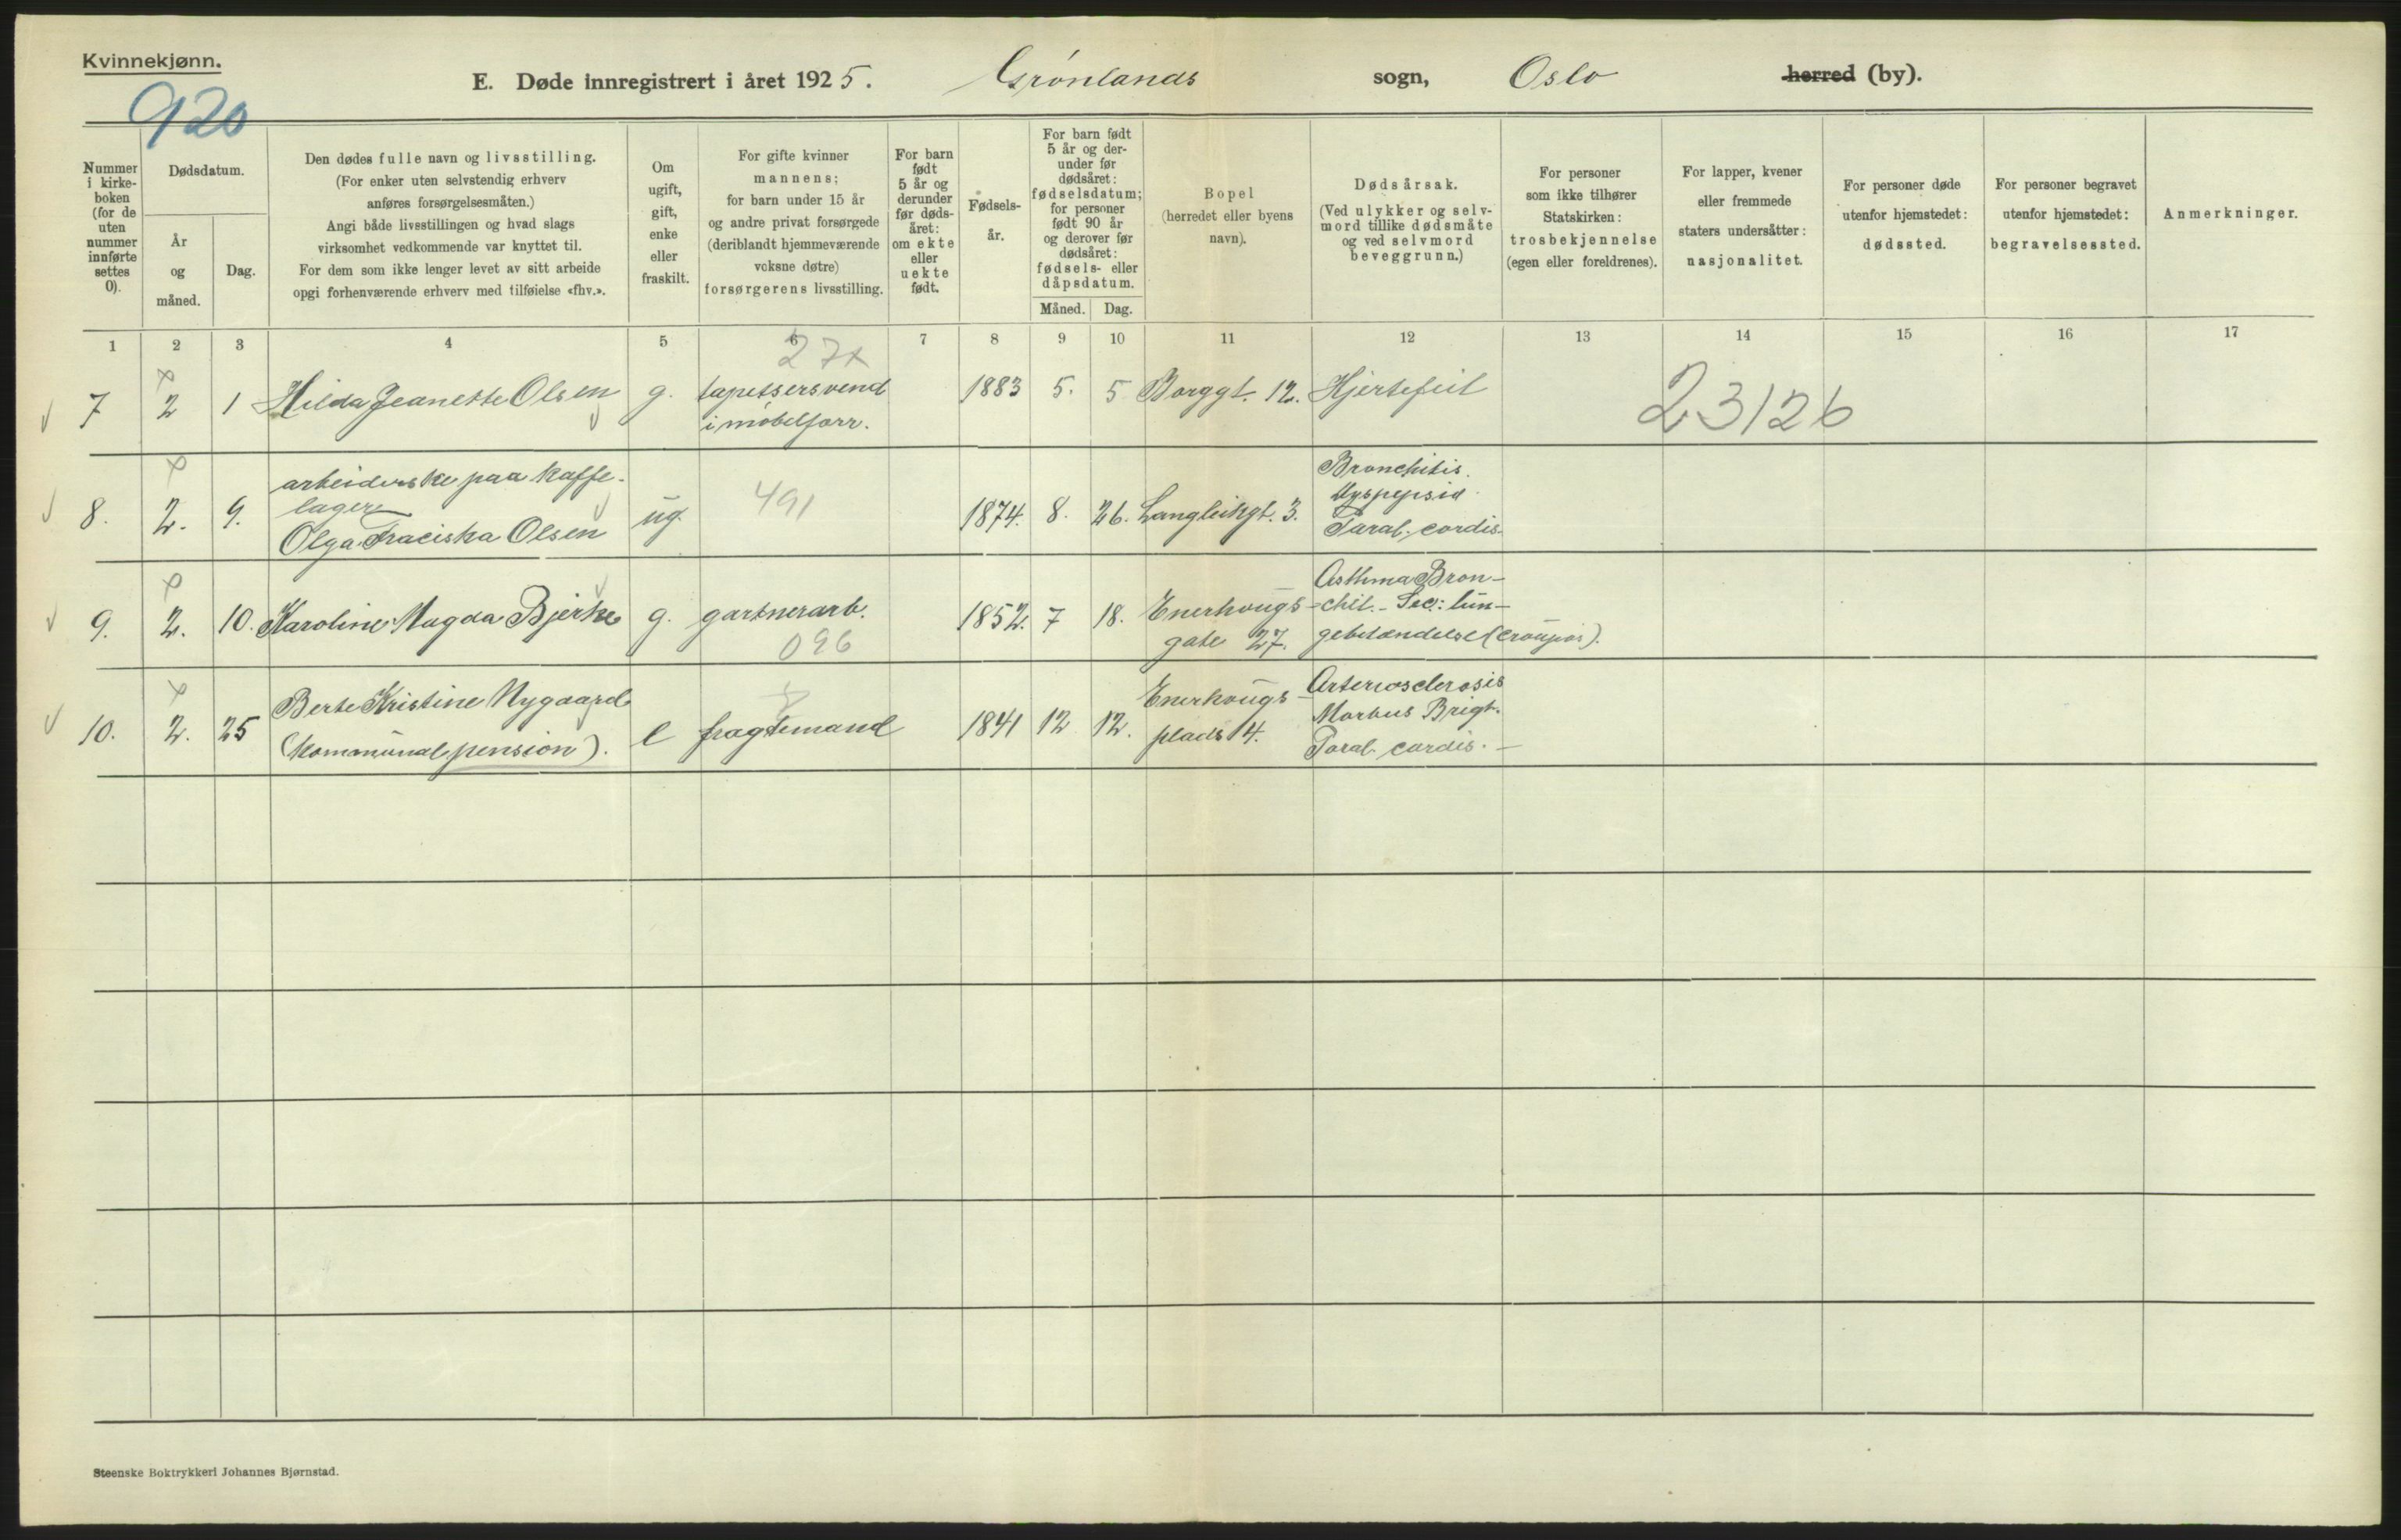 Kvinnekjønn.
920
E. Døde innregistrert i året 1925. Grønlands sogn, Oslo herred (by).
Nummer i kirke- boken (for de uten nummer innførte settes 0).
Dødsdatum.
År og måned.
Dag.
Den dødes fulle navn og livsstilling.
(For enker uten selvstendig erhverv
anføres forsørgelsesmåten.)
Angi både livsstillingen og hvad slags
virksomhet vedkommende var knyttet til.
For dem som ikke lenger levet av sitt arbeide
opgi forhenværende erhverv med tilføielse «fhv.».
Om ugift, gift, enke eller fraskilt.
For gifte kvinner
mannens;
for barn under 15 år
og andre privat forsørgede
(deriblandt hjemmeværende
voksne døtre)
forsørgerens livsstilling.
For barn født 5 år og derunder før døds- året: om ekte eller uekte født.
Fødsels- år.
For barn født
5 år og der-
under før
dødsåret:
fødselsdatum;
for personer
født 90 år
og derover før
dødsåret:
fødsels- eller
dåpsdatum.
Måned. Dag.
Bopel
(herredet eller byens
navn).
Dødsårsak.
(Ved ulykker og selv-
mord tillike dødsmåte
og ved selvmord
beveggrunn.)
For personer
som ikke tilhører
Statskirken:
trosbekjennelse
(egen eller foreldrenes).
For lapper, kvener
eller fremmede
staters undersåtter:
nasjonalitet.
For personer døde
utenfor hjemstedet:
dødssted.
For personer begravet
utenfor hjemstedet:
begravelsessted.
Anmerkninger.
1 2 3 4 5 6 7 8 9 10 11 12 13 14 15 16 17
7 2 1 Hilda Jeanette Olsen g. tapetsersvend
i møbelforr.
1883 5. 5 Borggt. 12. Hjertefeil
23126
8. 2. 9. arbeiderske paa kaffe-
lager
Olga Fraciska Olsen
ug. 491 1874. 8. 26. Langleikgt. 3. Bronchitis.
Dyspepsia.
Paral. cordis.
9. 2. 10. Karoline Magda Bjerke g. gartnerarb.
096
1852. 7 18. Enerhougs-
gate 27.
Asthma Bron-
chit. - Sec: lun-
gebetændelse (croupøs).
10. 2. 25 Berte Kristine Nygaard
(Kommunal pension).
e fragtemand 1841 12 12. Enerhougs-
plads 14.
Arteriosclerosis
Morbus Brigt.
Paral. cordis. -
Steenske Boktrykkeri Johannes Bjørnstad.